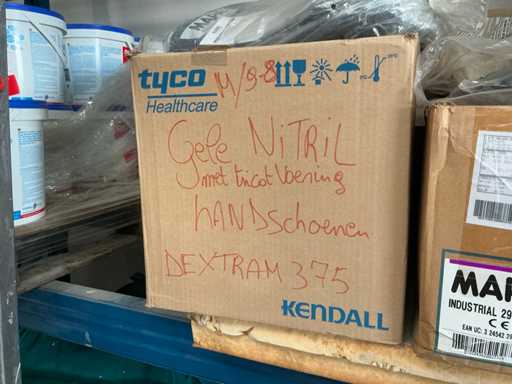 tyco
Healthcare
M/9-8
Gele NiTRiL
met tricot Voering
hANDSchoenen
DEXTRAM 375
KENDALL
MAP
INDUSTRIAL 29
CE
EAN UC: 3 24542 29